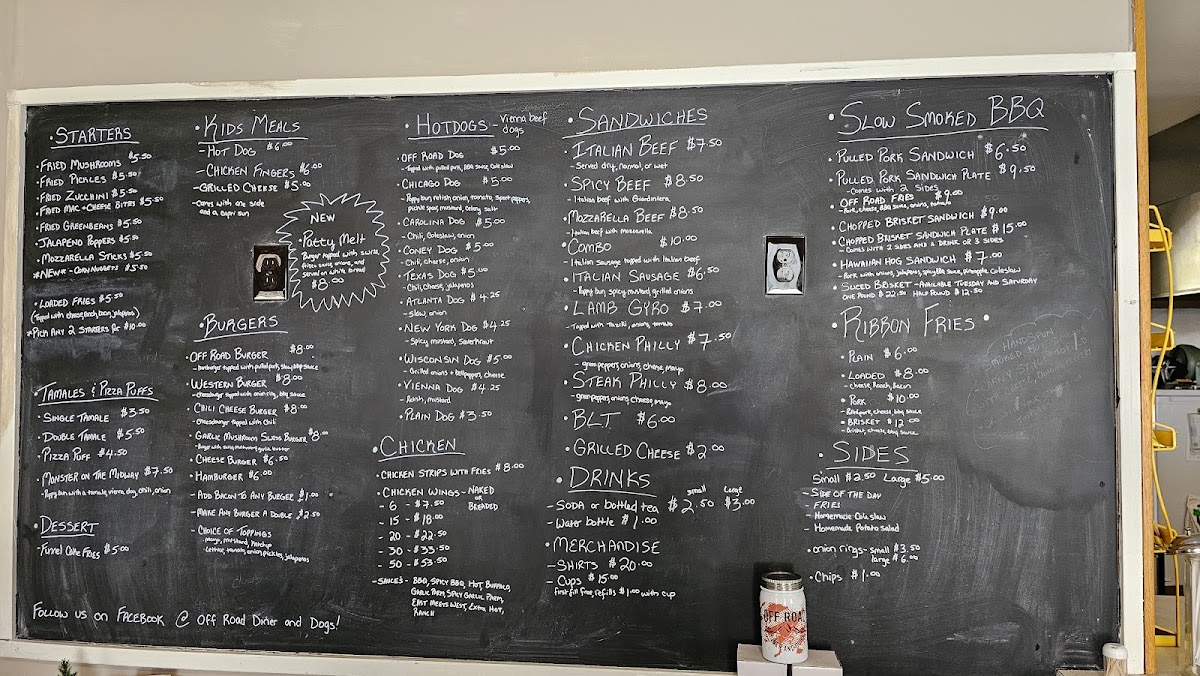 • STARTERS
• FRIED MUSHROOMS $5.50
• FRIED PICKLES $5.50
• FRIED ZUCCHINI $5.50
• FRIED MAC + CHEESE BITES $5.50
• FRIED GREENBEANS $5.50
• JALAPENO POPPERS $5.50
• MOZZARELLA STICKS $5.50
*NEW* - CORN NUGGETS $5.50
• LOADED FRIES $5.50
(Topped with cheese, ranch, bacon, jalapenos)
* PICK ANY 2 STARTERS for $10.00
• TAMALES & PIZZA PUFFS
• SINGLE TAMALE $3.50
• DOUBLE TAMALE $5.50
• PIZZA PUFF $4.50
• MONSTER ON THE MIDWAY $7.50
- Poppy bun with a tamale, vienna dog, chili, onion
• DESSERT
- Funnel Cake FRIES $5.00
FOLLOW US ON FACEBOOK @ OFF ROAD DINER AND DOGS!
• KIDS MEALS
- HOT DOG $6.00
- CHICKEN FINGERS $6.00
- GRILLED CHEESE $5.00
- Comes with one side
and a capri sun
NEW
• Patty Melt
Burger topped with swiss,
fried onions, and
served on white bread
$8.00
• BURGERS
OFF ROAD BURGER $8.00
- hamburger topped with pulled pork, slaw, bbq sauce
• WESTERN BURGER $8.00
- Cheeseburger topped with onion ring, bbq sauce
• CHILI CHEESE BURGER $8.00
- Cheeseburger topped with Chili
• GARLIC MUSHROOM SWISS BURGER $8.00
• CHEESE BURGER $6.50
• HAMBURGER $6.00
- ADD BACON TO ANY BURGER $1.00
- MAKE ANY BURGER A DOUBLE $2.50
- CHOICE OF TOPPINGS
- mayo, mustard, ketchup
- Lettuce, tomato, onion, pickles, jalapenos
• HOTDOGS - Vienna beef dogs
OFF ROAD DOG $5.00
- Topped with pulled pork, BBQ sauce, Coleslaw
CHICAGO DOG $5.00
- Poppy bun, relish, onion, tomato, sport peppers,
pickle spear, mustard, celery salt
CAROLINA DOG $5.00
- Chili, Coleslaw, onion
• CONEY DOG $5.00
- Chili, cheese, onion
• TEXAS DOG $5.00
- Chili, cheese, jalapenos
• ATLANTA DOG $4.25
- slaw, onion
• NEW YORK DOG $4.25
- Spicy mustard, Sauerkraut
• WISCONSIN DOG $5.00
- Grilled onions + bellpeppers, cheese
• VIENNA DOG $4.25
- Relish, mustard
• PLAIN DOG $3.50
• CHICKEN
• CHICKEN STRIPS WITH FRIES $8.00
• CHICKEN WINGS - NAKED OR BREADED
- 6 - $7.50
- 15 - $18.00
- 20 - $22.50
- 30 - $33.50
- 50 - $53.50
- SAUCES - BBQ, SPICY BBQ, HOT BUFFALO,
GARLIC PARM, SPICY GARLIC PARM,
EAST MEETS WEST, EXTRA HOT,
RANCH
• SANDWICHES
• ITALIAN BEEF $7.50
- Served dry, normal, or wet
• SPICY BEEF $8.50
- Italian beef with Giardiniera
• MOZZARELLA BEEF $8.50
- Italian beef with mozzarella
• COMBO $10.00
- Italian sausage topped with Italian beef
• ITALIAN SAUSAGE $6.50
- Poppy bun, spicy mustard, grilled onions
• LAMB GYRO $7.00
- Topped with Tzaziki, onions, tomato
• CHICKEN PHILLY $7.50
- green peppers, onions, cheese, mayo
• STEAK PHILLY $8.00
- green peppers, onions, cheese, mayo
• BLT $6.00
• GRILLED CHEESE $2.00
• DRINKS
small Large
- SODA or bottled tea $2.50 $3.00
- Water bottle $1.00
• MERCHANDISE
- SHIRTS $20.00
- Cups $15.00
First fill free, refills $1.00 with cup
• SLOW SMOKED BBQ
• PULLED PORK SANDWICH $6.50
PULLED PORK SANDWICH PLATE $9.50
- Comes with 2 sides
• OFF ROAD FRIES $9.00
- Pork, cheese, BBQ sauce, onion, tomato
• CHOPPED BRISKET SANDWICH $9.00
• CHOPPED BRISKET SANDWICH PLATE $15.00
- COMES WITH 2 SIDES AND A DRINK OR 3 SIDES
• HAWAIIAN HOG SANDWICH $7.00
- Pork with onions, jalapenos, spicy BBQ sauce, pineapple coleslaw
• SLICED BRISKET - AVAILABLE TUESDAY AND SATURDAY
ONE POUND $22.50 HALF POUND $12.50
• RIBBON FRIES •
• PLAIN $6.00
• LOADED $8.00
- cheese, Ranch, Bacon
• PORK $10.00
- Pulled pork, cheese, bbq sauce
• BRISKET $12.00
- Brisket, cheese, bbq sauce
• SIDES
Small $2.50 Large $5.00
- SIDE OF THE DAY
- FRIES
- Homemade Cole slaw
- Homemade Potato salad
• onion rings - small $3.50
large $6.00
• Chips $1.00
OFF ROAD